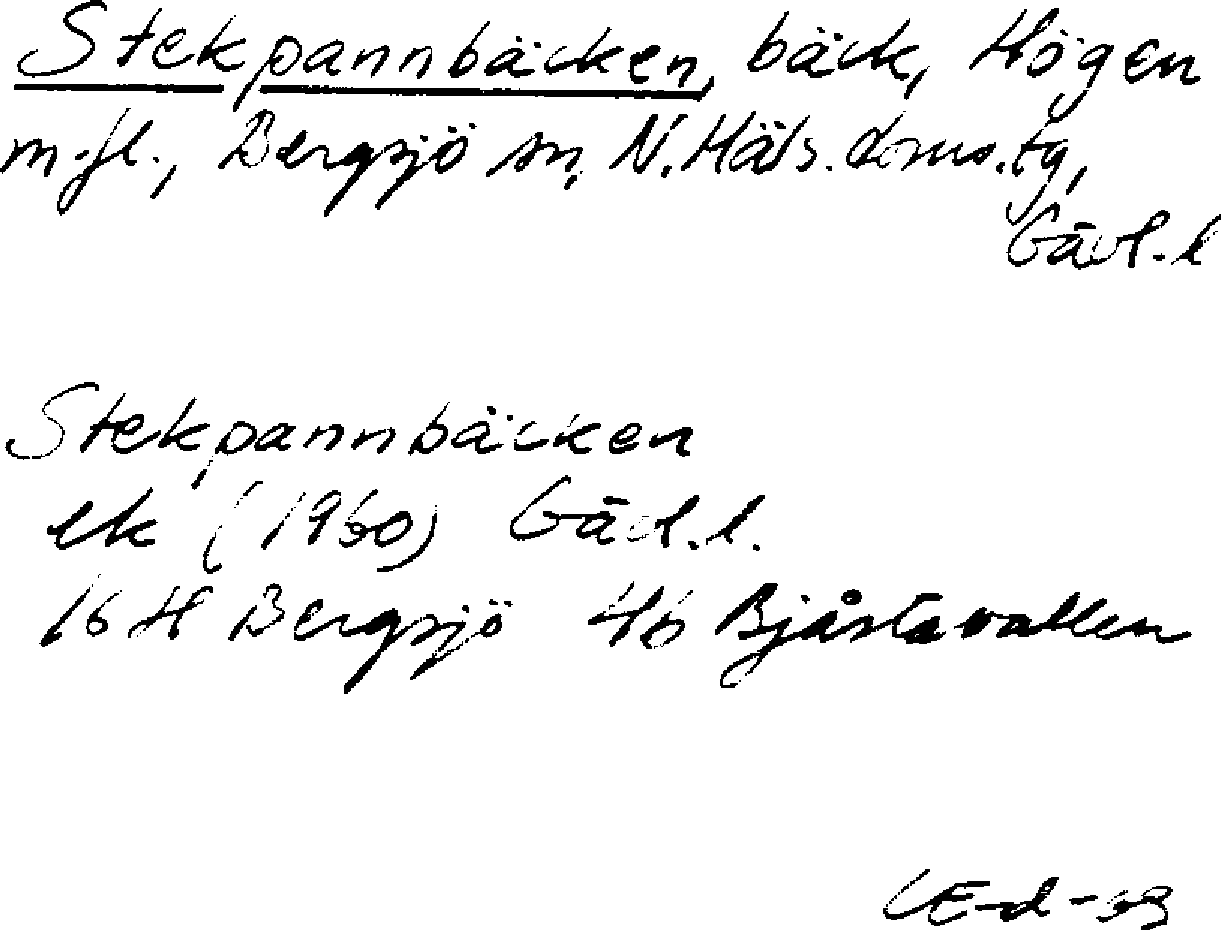 Stekpannbäcken, bäck, Högen
m.fl., Bergsjö sn, N. Häls. doms.tg,
Gävl.l
Stekpannbäcken
ek (1960) Gävl.l.
16 H Bergsjö 4b Bjåstavallen